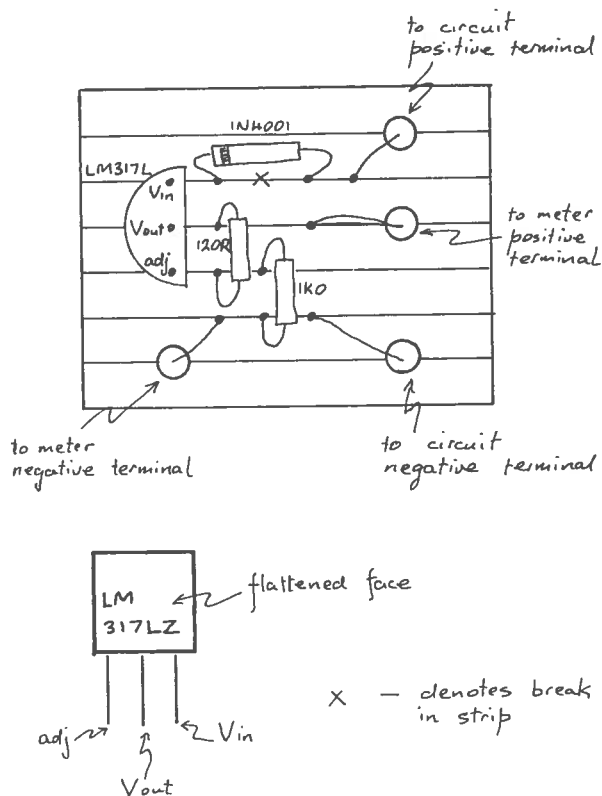 to circuit
positive terminal
1N4001
LM317L
Vin
Vout
adj
120R
1K0
to meter
positive
terminal
to meter
negative terminal
to circuit
negative terminal
LM
317LZ
flattened face
adj
Vout
Vin
x – denotes break
in strip